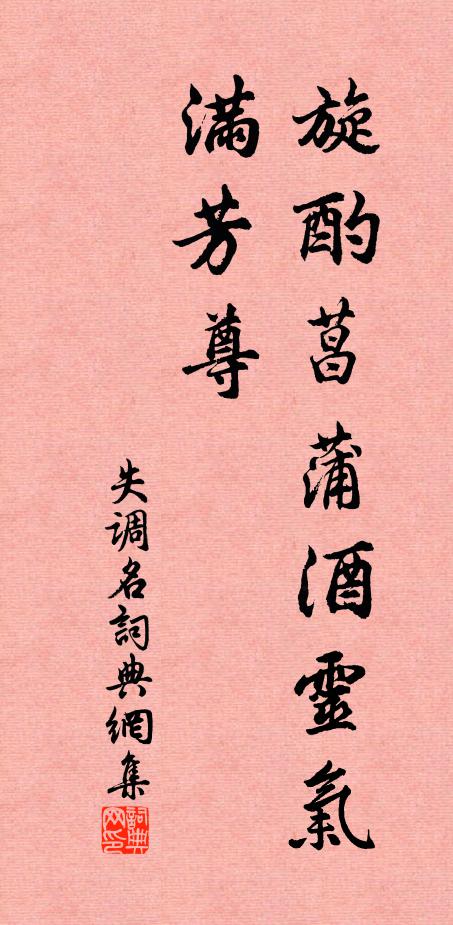 旋酌菖蒲酒靈氣
滿芳尊
失調名詞典網集
詞典网印